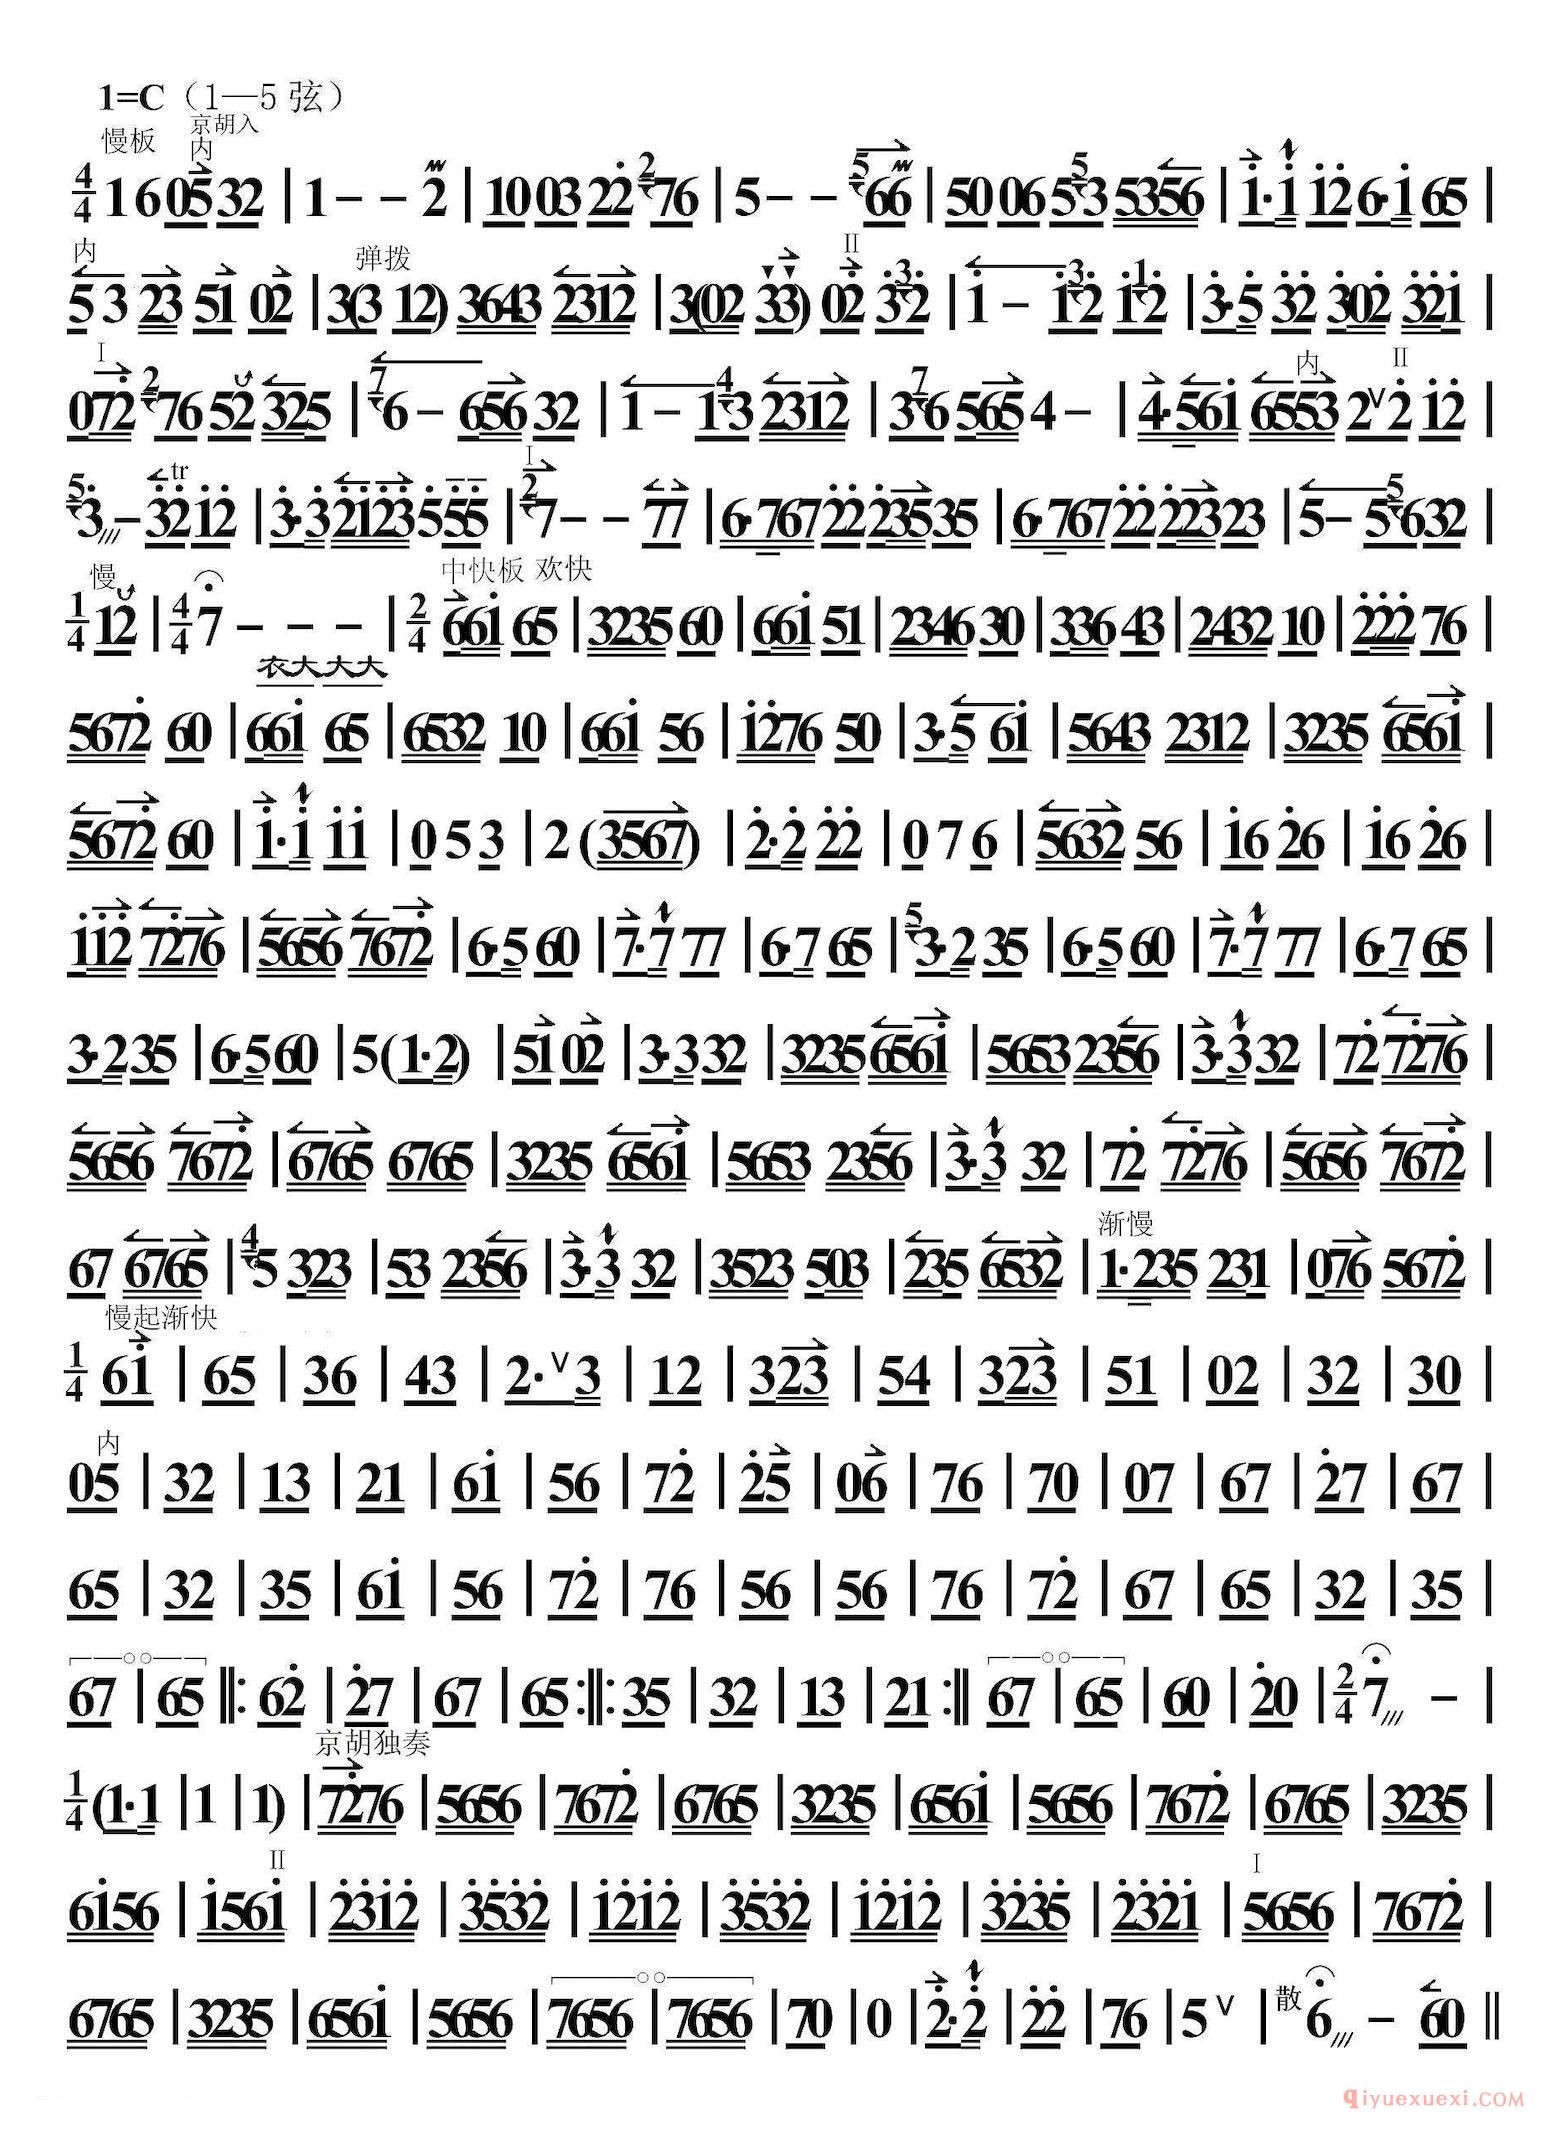 1=C（1—5 弦）
慢板 京胡入
内
4/4 1 6 05 32 | 1 - - 2 | 10 03 22 2 76 | 5 - - 5 66 | 50 06 5 5 3 5356 | 1· 1 12 6· 1 65 |
内 弹拨 II
5 3 23 51 02 | 3(3 12) 3643 2312 | 3(02 33) 02 3 3 2 | 1 - 1 3 2 1 1 2 | 3· 5 32 302 321 |
I 内 II
072 2 76 52 325 | 7 6 - 656 32 | 1 - 1 4 3 2312 | 3 7 6 565 4 - | 4· 561 6553 2 V 2 12 |
tr I
5 3 - 32 12 | 3· 3 2123 5 5 5 | 2 7 - - 77 | 6· 767 22 235 35 | 6· 767 22 2223 23 | 5 - 5 5 632 |
慢 中快板 欢快
1/4 12 | 4/4 7 - - - | 2/4 661 65 | 3235 60 | 661 51 | 2346 30 | 336 43 | 2432 10 | 222 76 |
衣大大大
5672 60 | 661 65 | 6532 10 | 661 56 | 1276 50 | 3· 5 61 | 5643 2312 | 3235 6561 |
5672 60 | 1· 1 11 | 0 5 3 | 2 (3567) | 2· 2 22 | 0 7 6 | 5632 56 | 16 26 | 16 26 |
112 7276 | 5656 7672 | 6· 5 60 | 7· 7 77 | 6· 7 65 | 5 3· 2 35 | 6· 5 60 | 7· 7 77 | 6· 7 65 |
3· 2 35 | 6· 5 60 | 5 (1· 2) | 51 02 | 3· 3 32 | 3235 6561 | 5653 2356 | 3· 3 32 | 72 7276 |
5656 7672 | 6765 6765 | 3235 6561 | 5653 2356 | 3· 3 32 | 72 7276 | 5656 7672 |
渐慢
67 6765 | 4 5 323 | 53 2356 | 3· 3 32 | 3523 503 | 235 6532 | 1· 235 231 | 076 5672 |
慢起渐快
1/4 61 | 65 | 36 | 43 | 2· V 3 | 12 | 323 | 54 | 323 | 51 | 02 | 32 | 30 |
内
05 | 32 | 13 | 21 | 61 | 56 | 72 | 25 | 06 | 76 | 70 | 07 | 67 | 27 | 67 |
65 | 32 | 35 | 61 | 56 | 72 | 76 | 56 | 56 | 76 | 72 | 67 | 65 | 32 | 35 |
67 | 65 ‖: 62 | 27 | 67 | 65 :‖: 35 | 32 | 13 | 21 :‖ 67 | 65 | 60 | 20 | 2/4 7 - |
京胡独奏
1/4 (1· 1 | 1 | 1) | 7276 | 5656 | 7672 | 6765 | 3235 | 6561 | 5656 | 7672 | 6765 | 3235 |
II I
6156 | 1561 | 2312 | 3532 | 1212 | 3532 | 1212 | 3235 | 2321 | 5656 | 7672 |
6765 | 3235 | 6561 | 5656 | 7656 | 7656 | 70 | 0 | 2· 2 | 22 | 76 | 5 V | 散 6 - 60 ‖
qiyuexuexi.COM